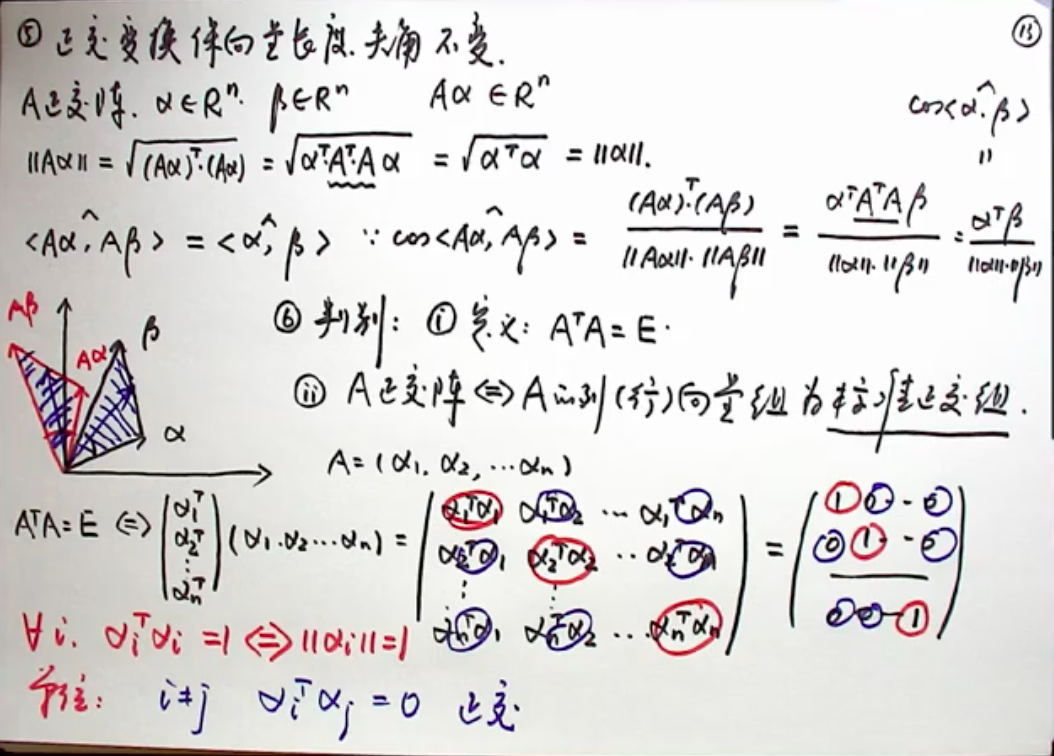 ⑤ 正交变换保向量长度.夹角不变. ⑬
A正交阵. α∈Rⁿ. β∈Rⁿ Aα∈Rⁿ
cos<α^,β>
"
||Aα|| = √((Aα)ᵀ·(Aα)) = √(αᵀ·Aᵀ·Aα) = √(αᵀα) = ||α||.
<Aα^,Aβ> = <α^,β> ∵ cos<Aα^,Aβ> = (Aα)ᵀ·(Aβ) / ||Aα||·||Aβ|| = αᵀAᵀAβ / ||α||·||β|| = αᵀβ / ||α||·||β||
Aβ Aα β α
⑥ 判别: ⓘ 定义: AᵀA=E.
ⅱ A正交阵 ⇔ A的列(行)向量组为标准正交组.
A=(α₁, α₂, ⋯αₙ)
AᵀA=E ⇔ (α₁ᵀ α₂ᵀ ⋮ αₙᵀ) (α₁.α₂⋯αₙ) = (α₁ᵀα₁ α₁ᵀα₂ ⋯ α₁ᵀαₙ
α₂ᵀα₁ α₂ᵀα₂ ‥ α₂ᵀαₙ
⋮ ⋮
αₙᵀα₁ αₙᵀα₂ ⋯ αₙᵀαₙ) = (1 0 - 0
0 1 - - 0
0 0 - 1)
∀i. αᵢᵀαᵢ=1 ⇔ ||αᵢ||=1
单位: i≠j αᵢᵀαⱼ=0 正交